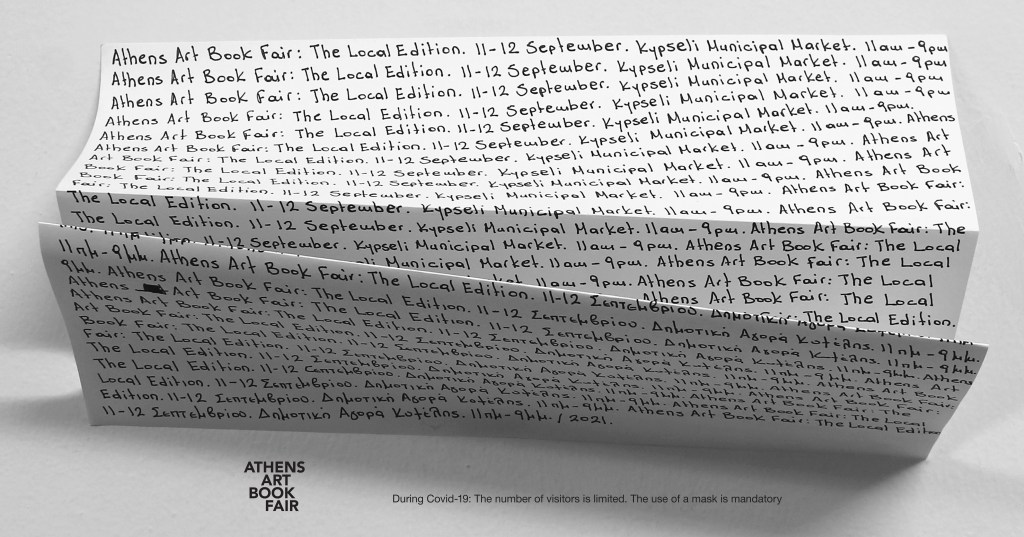 Athens Art Book Fair: The Local Edition. 11-12 September. Kypseli Municipal Market. 11am-9pm
Athens Art Book Fair: The Local Edition. 11-12 September. Kypseli Municipal Market. 11am-9pm
Athens Art Book Fair: The Local Edition. 11-12 September. Kypseli Municipal Market. 11am-9pm
Athens Art Book Fair: The Local Edition. 11-12 September. Kypseli Municipal Market. 11am-9pm.
Athens Art Book Fair: The Local Edition. 11-12 September. Kypseli Municipal Market. 11am-9pm. Athens
Athens Art Book Fair: The Local Edition. 11-12 September. Kypseli Municipal Market. 11am-9pm. Athens Art
Art Book Fair: The Local Edition. 11-12 September. Kypseli Municipal Market. 11am-9pm. Athens Art
Book Fair: The Local Edition. 11-12 September. Kypseli Municipal Market. 11am-9pm. Athens Art Book
Fair: The Local Edition. 11-12 September. Kypseli Municipal Market. 11am-9pm. Athens Art Book Fair:
The Local Edition. 11-12 September. Kypseli Municipal Market. 11am-9pm. Athens Art Book Fair:
The Local Edition. 11-12 September. Kypseli Municipal Market. 11am-9pm. Athens Art Book Fair: The
11-12 September. Kypseli Municipal Market. 11am-9pm. Athens Art Book Fair: The Local
11am-9pm. Athens Art Book Fair: The Local
Athens Art Book Fair: The Local
Edition.
11πμ-9μμ. Athens Art Book Fair: The Local Edition. 11-12 Σεπτεμβρίου. Δημοτική Αγορά
9μμ. Athens Art Book Fair: The Local Edition. 11-12 Σεπτεμβρίου. Δημοτική Αγορά Κυψέλης. 11πμ-9μμ.
Athens Art Book Fair: The Local Edition. 11-12 Σεπτεμβρίου. Δημοτική Αγορά Κυψέλης. 11πμ-9μμ.
Athens Art Book Fair: The Local Edition. 11-12 Σεπτεμβρίου. Δημοτική Αγορά Κυψέλης. 11πμ-9μμ. Athens
Art Book Fair: The Local Edition. 11-12 Σεπτεμβρίου. Δημοτική Αγορά Κυψέλης. 11πμ-9μμ. Athens Art
Book Fair: The Local Edition. 11-12 Σεπτεμβρίου. Δημοτική Αγορά Κυψέλης. 11πμ-9μμ. Athens Art Book
Fair: The Local Edition. 11-12 Σεπτεμβρίου. Δημοτική Αγορά Κυψέλης. 11πμ-9μμ. Athens Art Book Fair:
The Local Edition. 11-12 Σεπτεμβρίου. Δημοτική Αγορά Κυψέλης. 11πμ-9μμ. Athens Art Book Fair: The Local
Local Edition. 11-12 Σεπτεμβρίου. Δημοτική Αγορά Κυψέλης. 11πμ-9μμ. Athens Art Book Fair: The Local Edition
Edition. 11-12 Σεπτεμβρίου. Δημοτική Αγορά Κυψέλης. 11πμ-9μμ. / 2021.
11-12 Σεπτεμβρίου. Δημοτική Αγορά Κυψέλης.
ATHENS
ART
BOOK
FAIR
During Covid-19: The number of visitors is limited. The use of a mask is mandatory